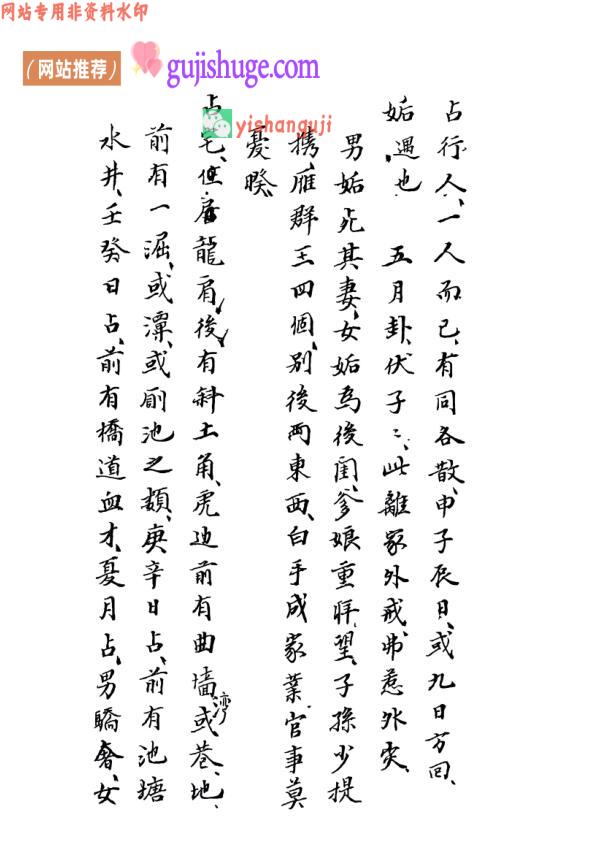 网站专用非资料水印
（网站推荐）
gujishuge.com
yishanguji
占行人、一人而已、有同各散、申子辰日、或九日方回、
姤、遇也　五月卦、伏子：、此離家外戒、弗惹外災、
男姤死其妻、女姤為後閨、爹娘重拜望、子孫少提
携、雁群三四個、別後两東西、白手成家業、官事莫
憂暌、
占宅、住居龍肩、後有斜土角、虎边前有曲墙、或巷、地、
灣
前有一淈、或潭、或廁池之類、庚辛日占、前有池塘
水井、壬癸日占、前有橋道血才、夏月占、男驕奢、女